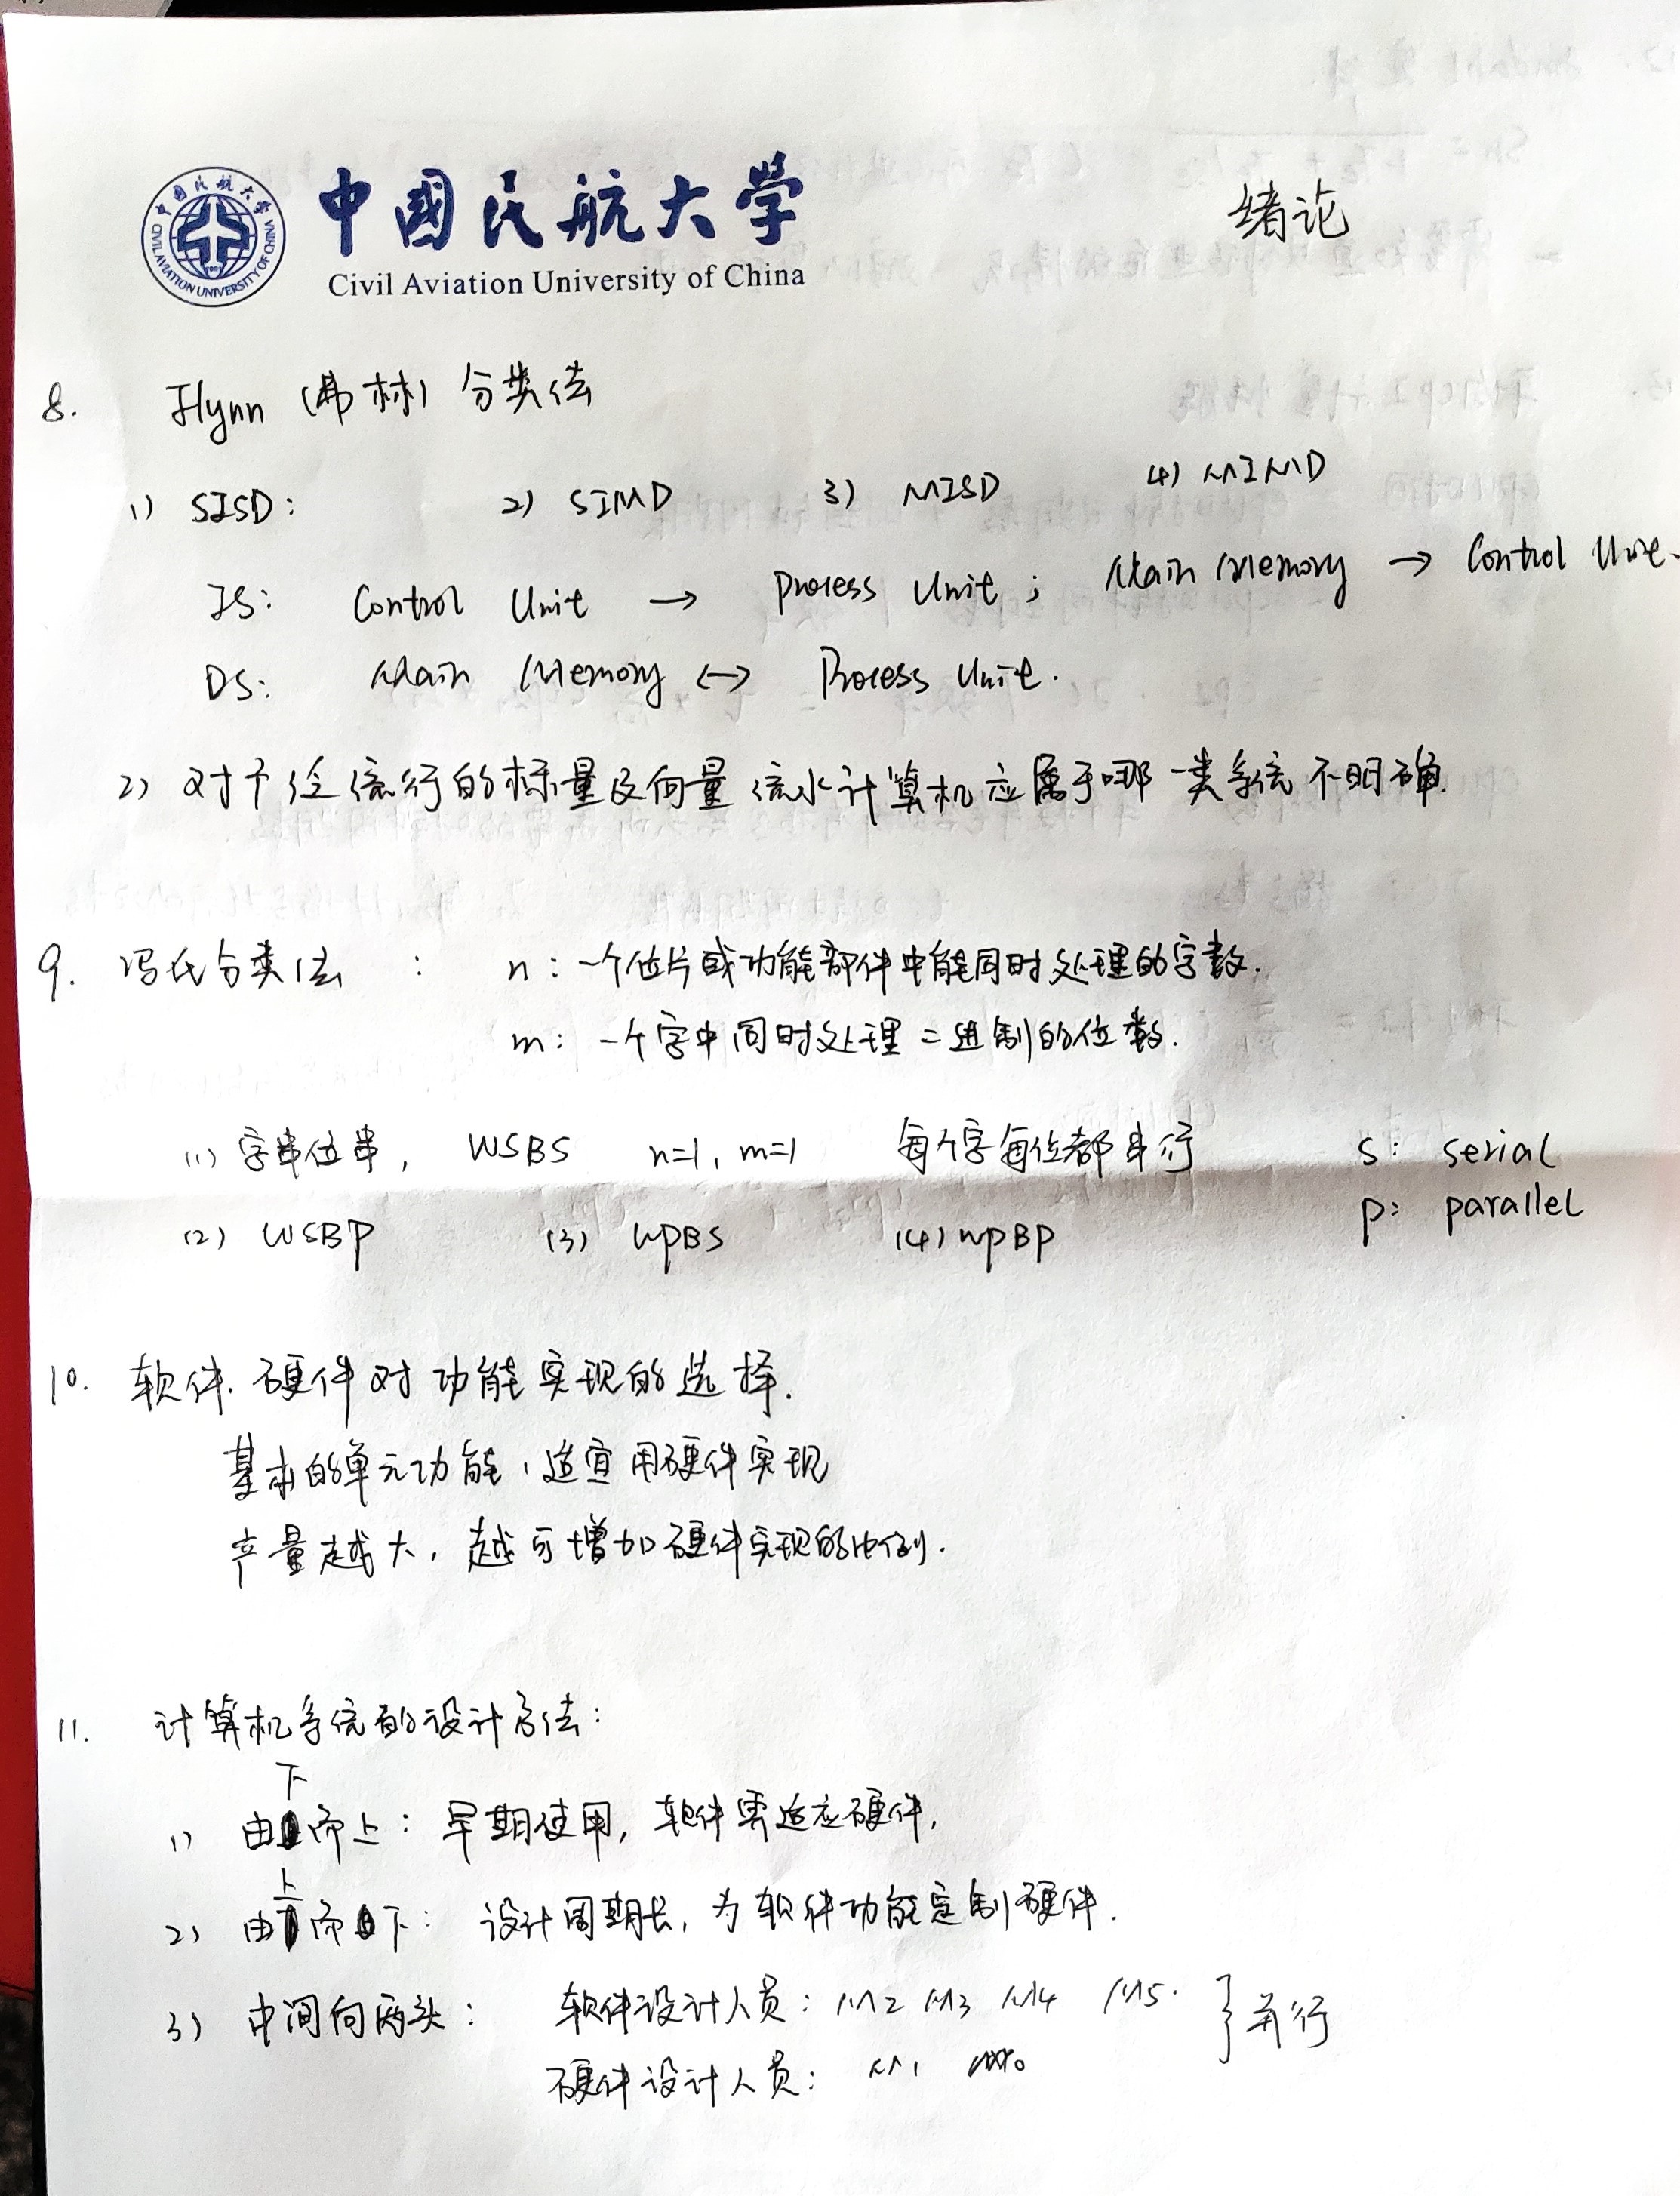 中國民航大学
Civil Aviation University of China
中國民航大学
CIVIL AVIATION UNIVERSITY OF CHINA
绪论
8. Flynn (弗林) 分类法
1) SISD: 2) SIMD 3) MISD 4) MIMD
IS: Control Unit → Process Unit; Main Memory → Control Unit.
DS: Main Memory ↔ Process Unit.
2) 对于 流行的标量及向量流水计算机应属于哪一类系统不明确.
9. 冯氏分类法 : n: 一个位片或功能部件中能同时处理的字数.
m: 一个字中同时处理二进制的位数.
(1) 字串位串, WSBS n=1, m=1 每个字每位都串行 S: serial
(2) WSBP (3) WPBS (4) WPBP P: parallel
10. 软件.硬件对功能实现的选择.
基本的单元功能,适宜用硬件实现
产量越大,越可增加硬件实现的比例.
11. 计算机系统的设计方法:
1) 由下而上: 早期使用,软件需适应硬件,
2) 由上而下: 设计周期长,为软件功能定制硬件.
3) 中间向两头: 软件设计人员: M2 M3 M4 M5. } 并行
硬件设计人员: M1 M0